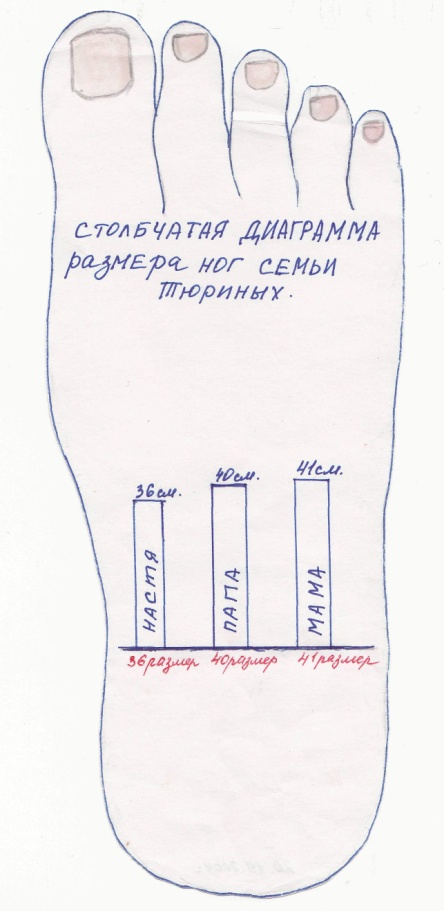 СТОЛБЧАТАЯ ДИАГРАММА
размера ног семьи
Тюриных.
36см. 40см. 41см.
НАСТЯ ПАПА МАМА
36размер 40размер 41размер